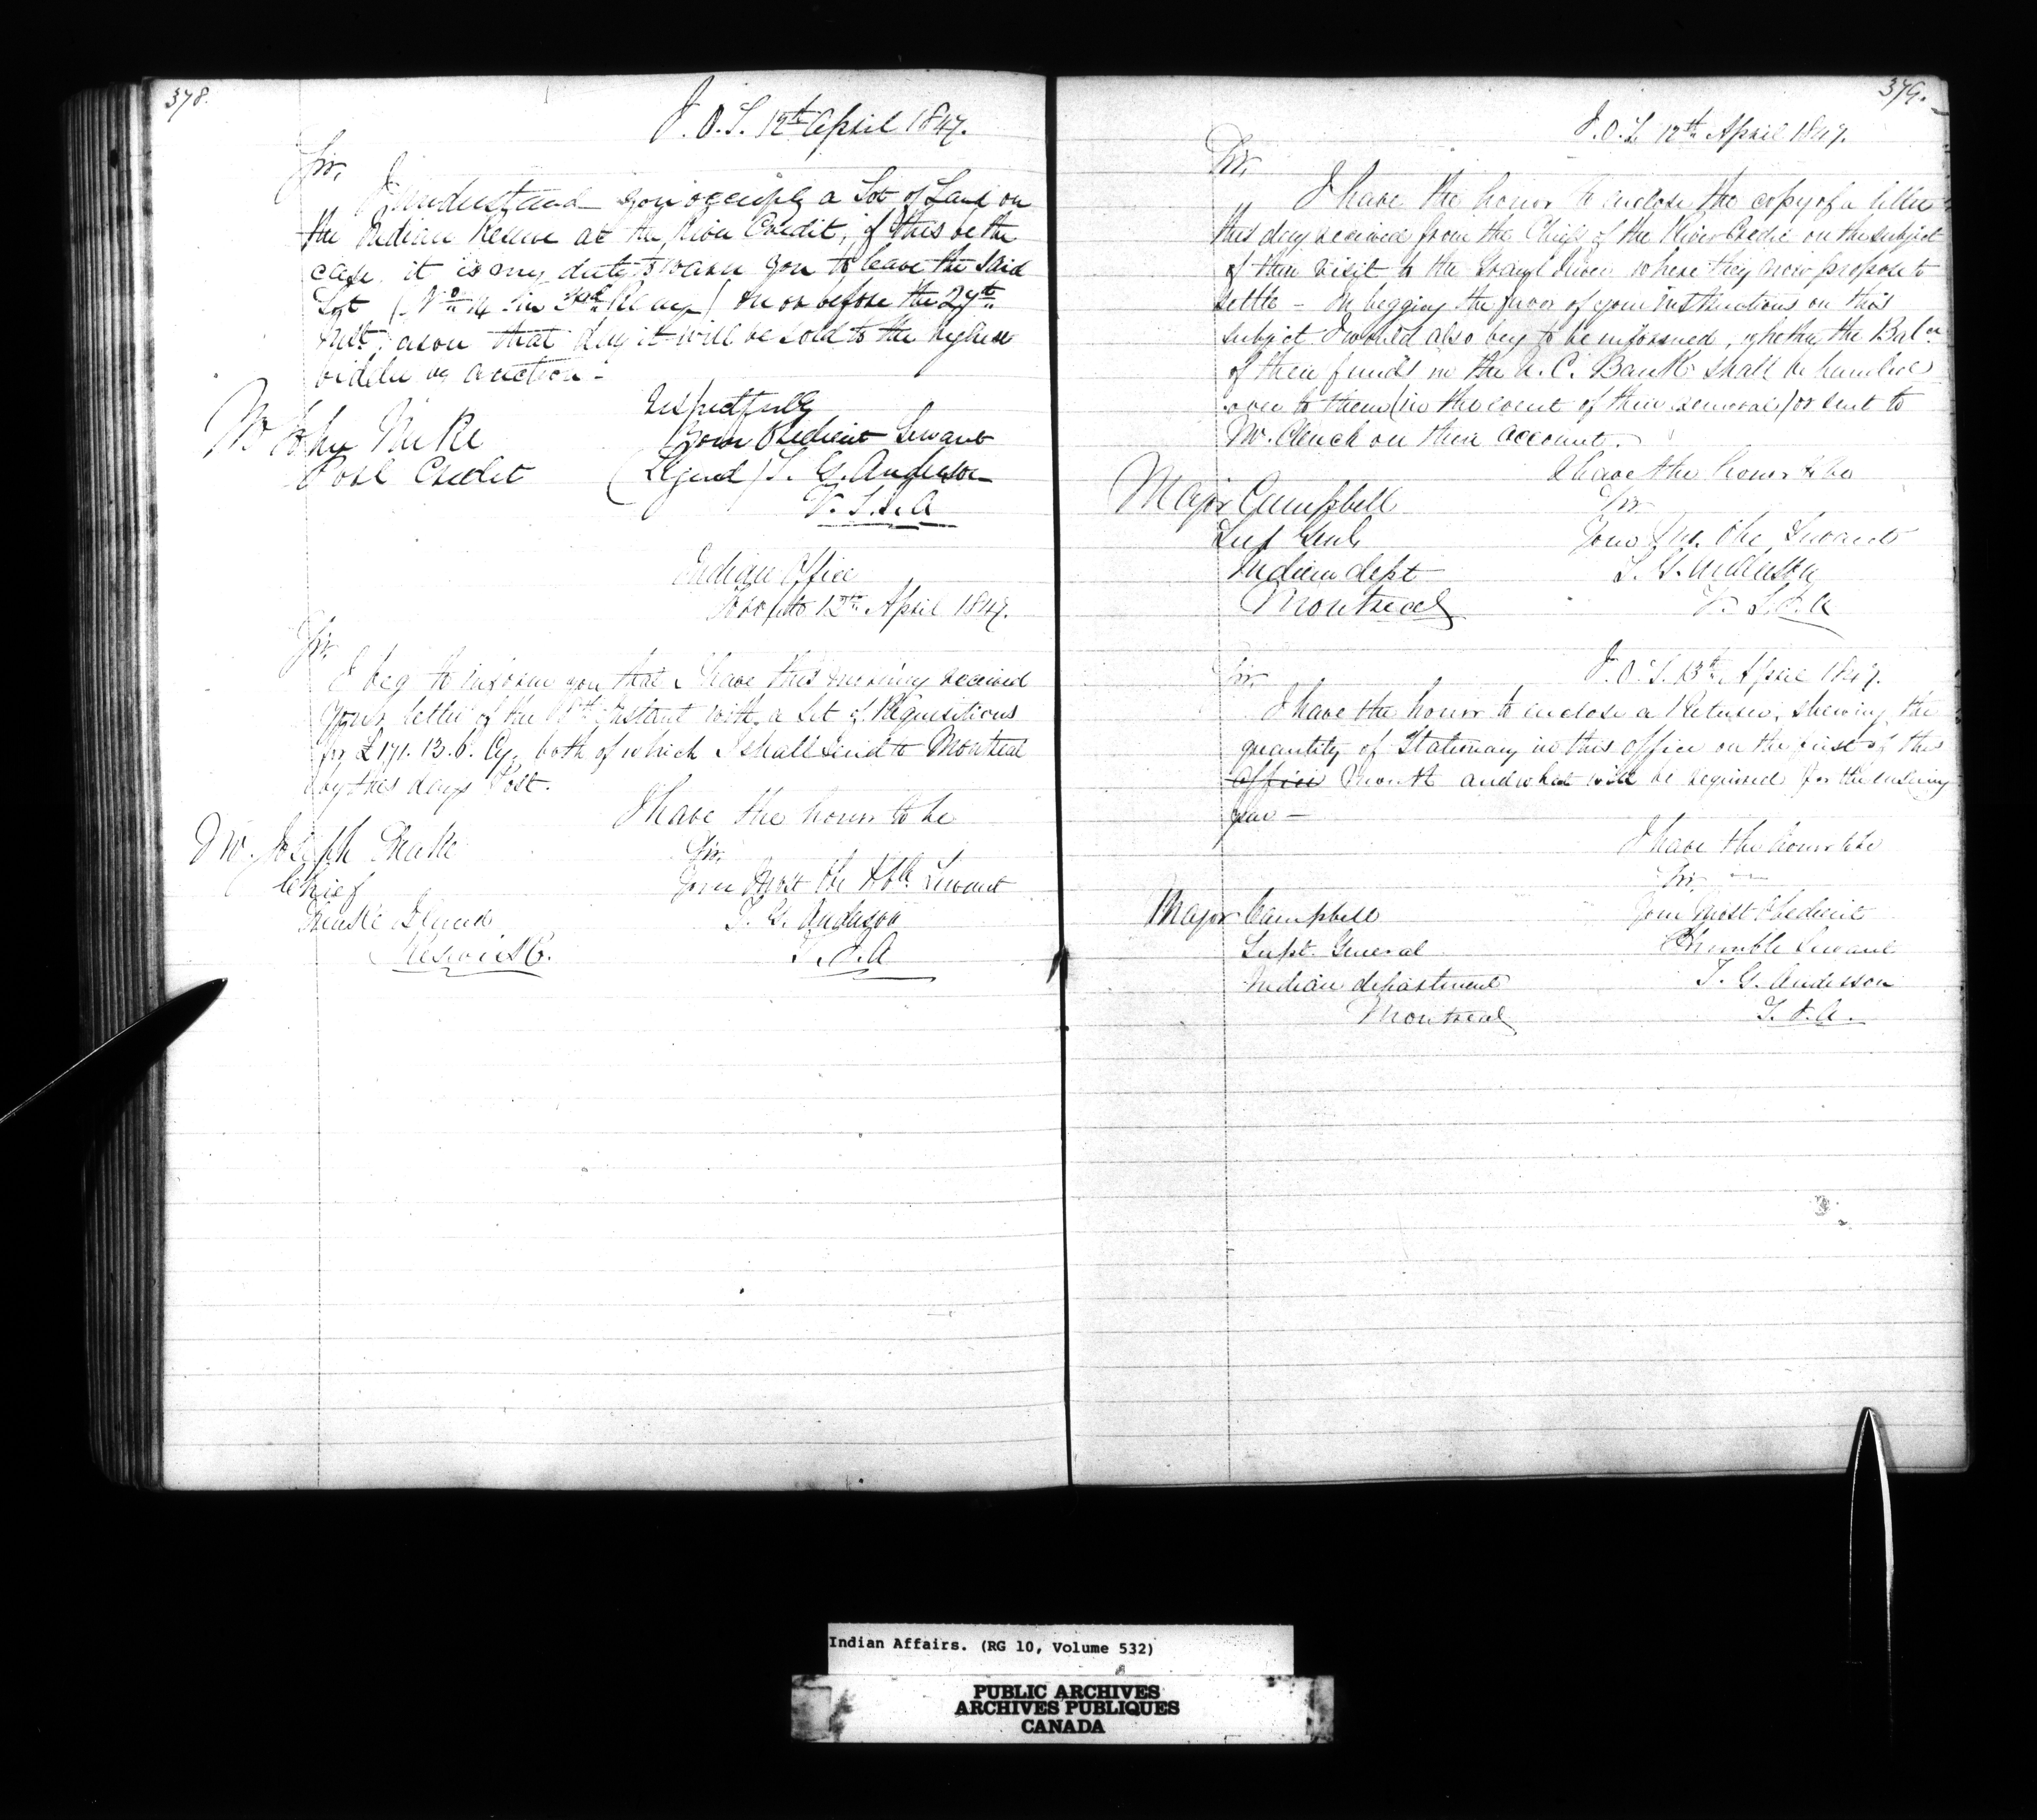 378.
I. O. T. 12th April 1847.
Sir,
I understand you occupy a Lot of Land on
the Indian Reserve at the River Credit, if this be the
case, it is my duty to warn you to leave the said
Lot (No 14 in 3rd Range) on or before the 27th
Inst, as on that day it will be sold to the highest
bidder by auction.-
Respectfully
Your Obedient Servant
(Signed) T. G. Anderson
V. S. I. A
Mr John
Port Credit
Indian Office
Toronto 12th April 1847.
Sir
I beg to inform you that I have this morning received
your letter of the Instant with a Set of Requisitions
for £171.13.6. Cy, both of which I shall send to Montreal
by this days Post.
I have the honor to be
Sir,
Your Most Obt Hble Servant
T. G. Anderson
S. I. A
Mr. Joseph Snake
Chief
Snake Island
379.
I. O. T. 12th April 1847.
Sir,
I have the honor to enclose the copy of a letter
this day received from the Chiefs of the River Credit on the subject
of their visit to the River where they now propose to
settle - In begging the favor of your instructions on this
subject I would also beg to be informed, whether the Balce
of their funds in the U. C. Bank shall be handed
over to them (in the event of their removal) or sent to
Mr. Clench on their account.
I have the honor to be
Sir
Your Mo. Obe Servant
T. G. Anderson
V. S. I. A
Major Campbell
Supt Genl
Indian dept
Montreal
I. O. T. 13th April 1847.
Sir,
I have the honor to enclose a Return, shewing the
quantity of Stationary in this office on the first of this
Office Month and what will be required for the ensuing
year -
I have the honor to be
Sir,
Your Most Obedient
Humble Servant
T. G. Anderson
S. I. A.
Major Campbell
Supt. General
Indian department
Montreal
Indian Affairs. (RG 10, Volume 532)
PUBLIC ARCHIVES
ARCHIVES PUBLIQUES
CANADA